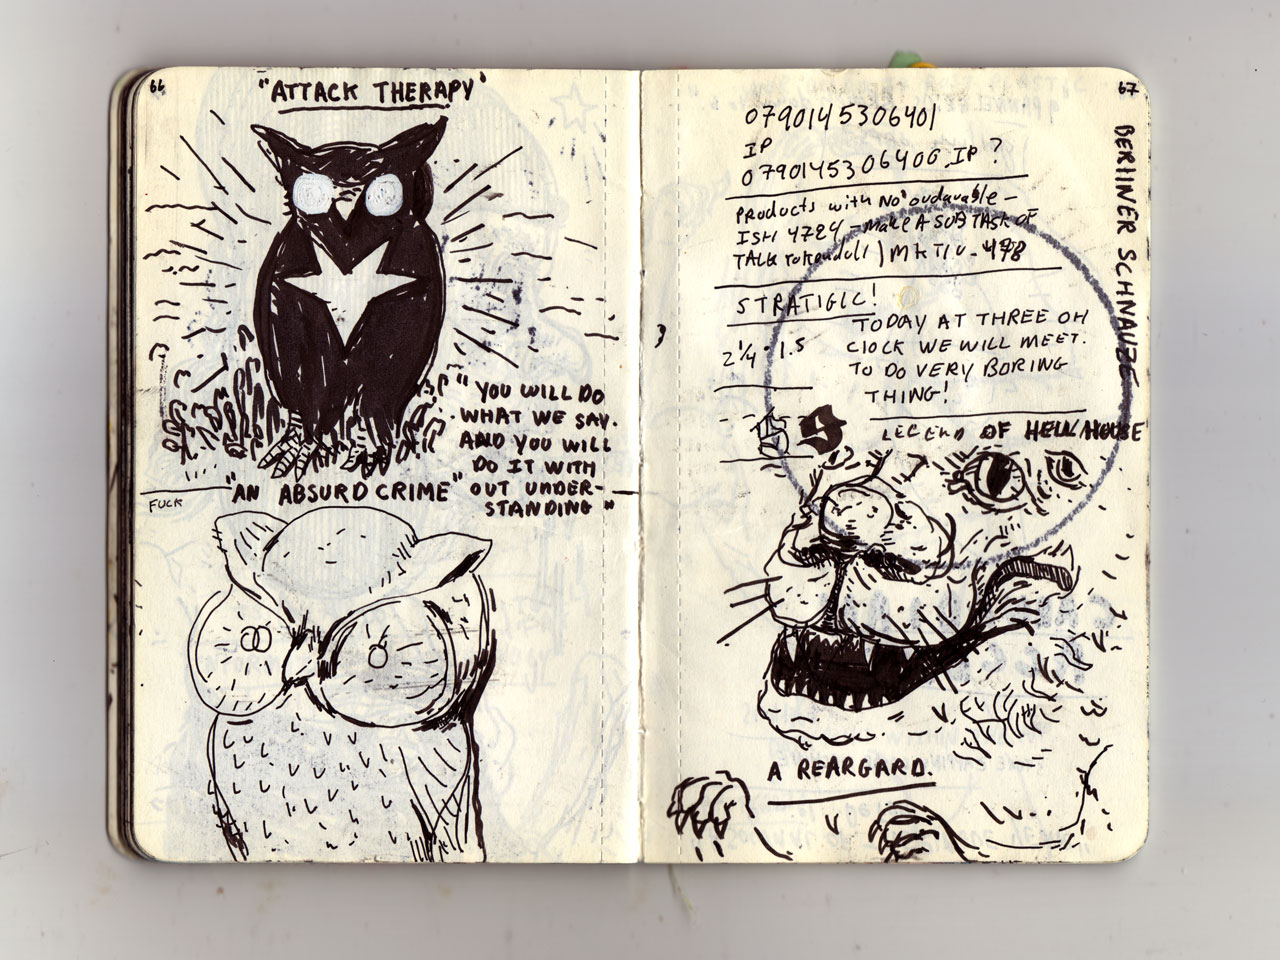 66
"ATTACK THERAPY"
"YOU WILL DO
WHAT WE SAY.
AND YOU WILL
DO IT WITH
OUT UNDER-
STANDING"
"AN ABSURD CRIME"
FUCK
67
0790145306401
IP
0790145306406.IP?
PRODUCTS WITH NO
ISH 4724 - MAKE A SUB TASK OF
TALK TO
STRATIGIC!
2 1/4 · 1.5
TODAY AT THREE OH
CLOCK WE WILL MEET.
TO DO VERY BORING
THING!
LEGEND OF HELL HOUSE
BERLINER SCHNAUZE
A REARGARD.